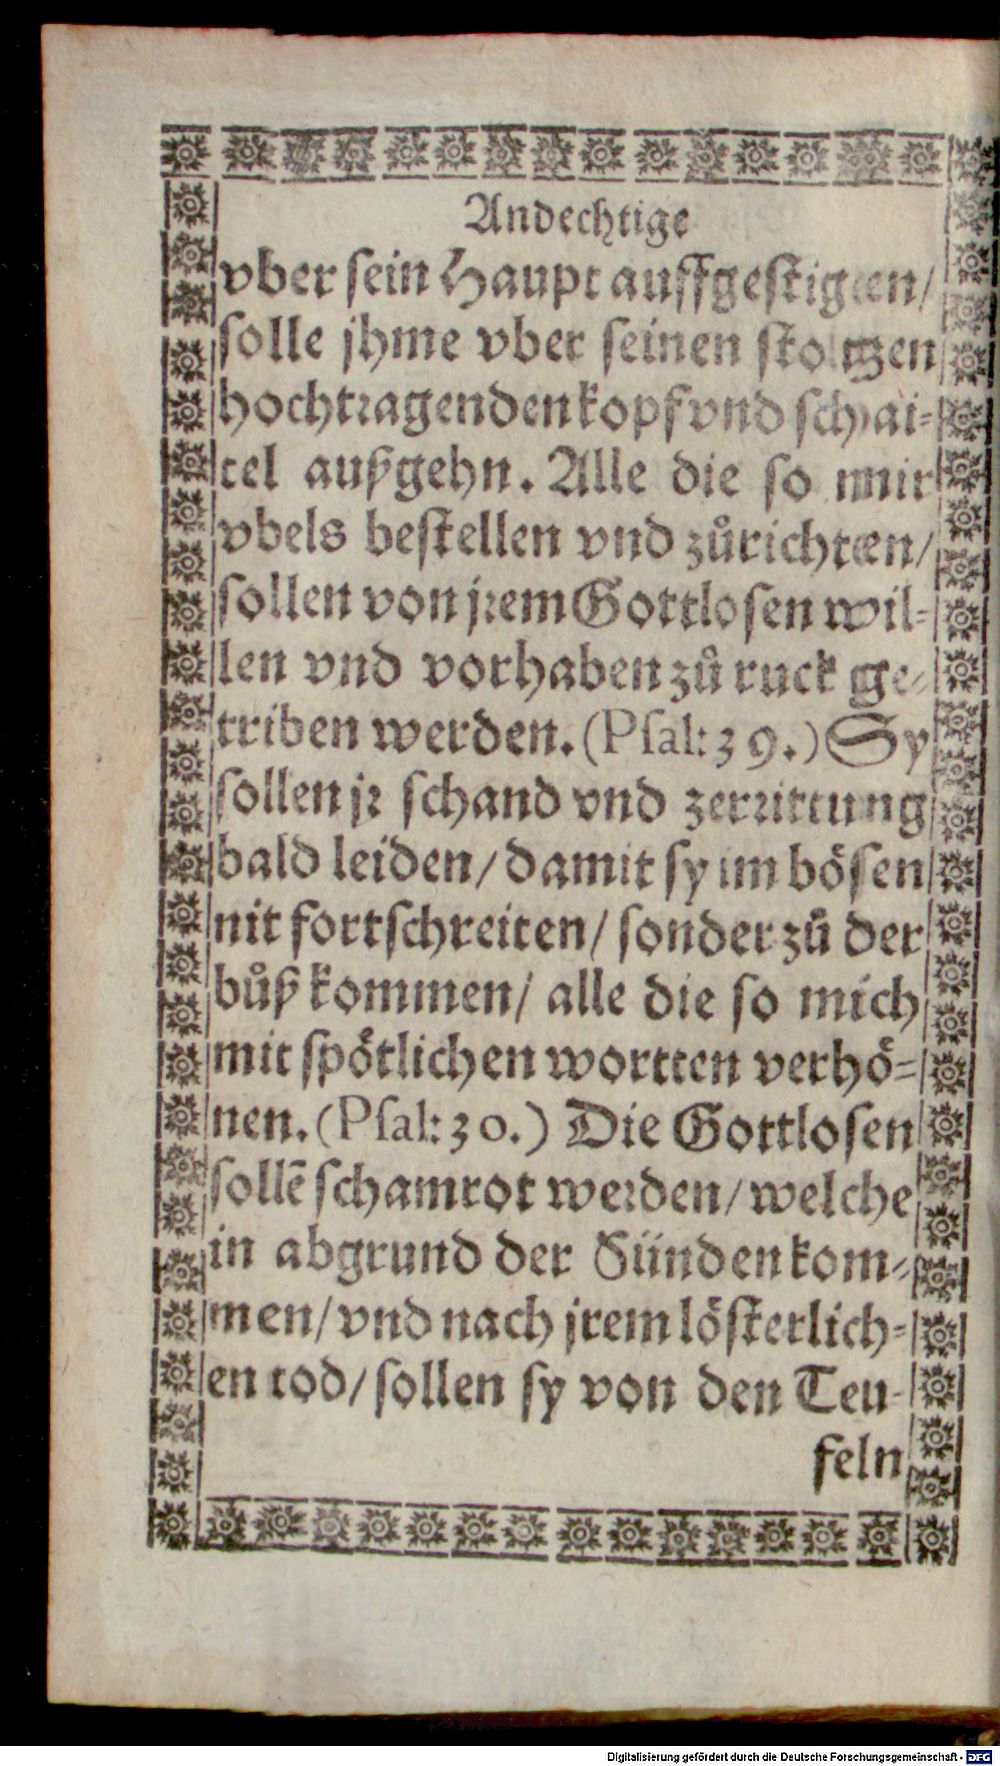 Andechtige
vber sein Haupt auffgestigen/
solle jhme vber seinen stoltzen
hochtragenden kopf vnd schai-
tel außgehn. Alle die so mir
vbels bestellen vnd zůrichten/
sollen von jrem Gottlosen wil-
len vnd vorhaben zů ruck ge-
triben werden. (Psal: 39.) Sy
sollen jr schand vnd zerrittung
bald leiden/ damit sy im bösen
nit fortschreiten/ sonder zů der
bůß kommen/ alle die so mich
mit spötlichen wortten verhö-
nen. (Psal: 30.) Die Gottlosen
sollẽ schamrot werden/ welche
in abgrund der Sünden kom-
men/ vnd nach jrem lösterlich-
en tod/ sollen sy von den Teu-
feln
Digitalisierung gefördert durch die Deutsche Forschungsgemeinschaft - DFG